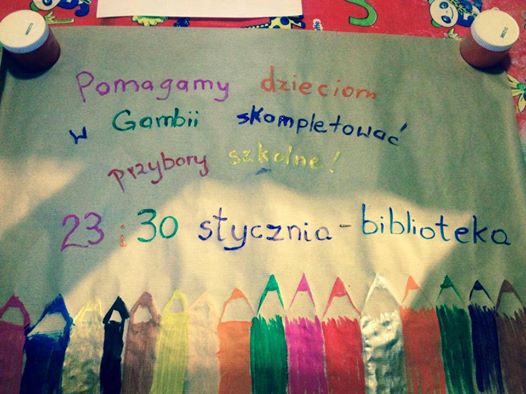 Pomagamy dzieciom
w Gambii skompletować
przybory szkolne!
23 i 30 stycznia - biblioteka